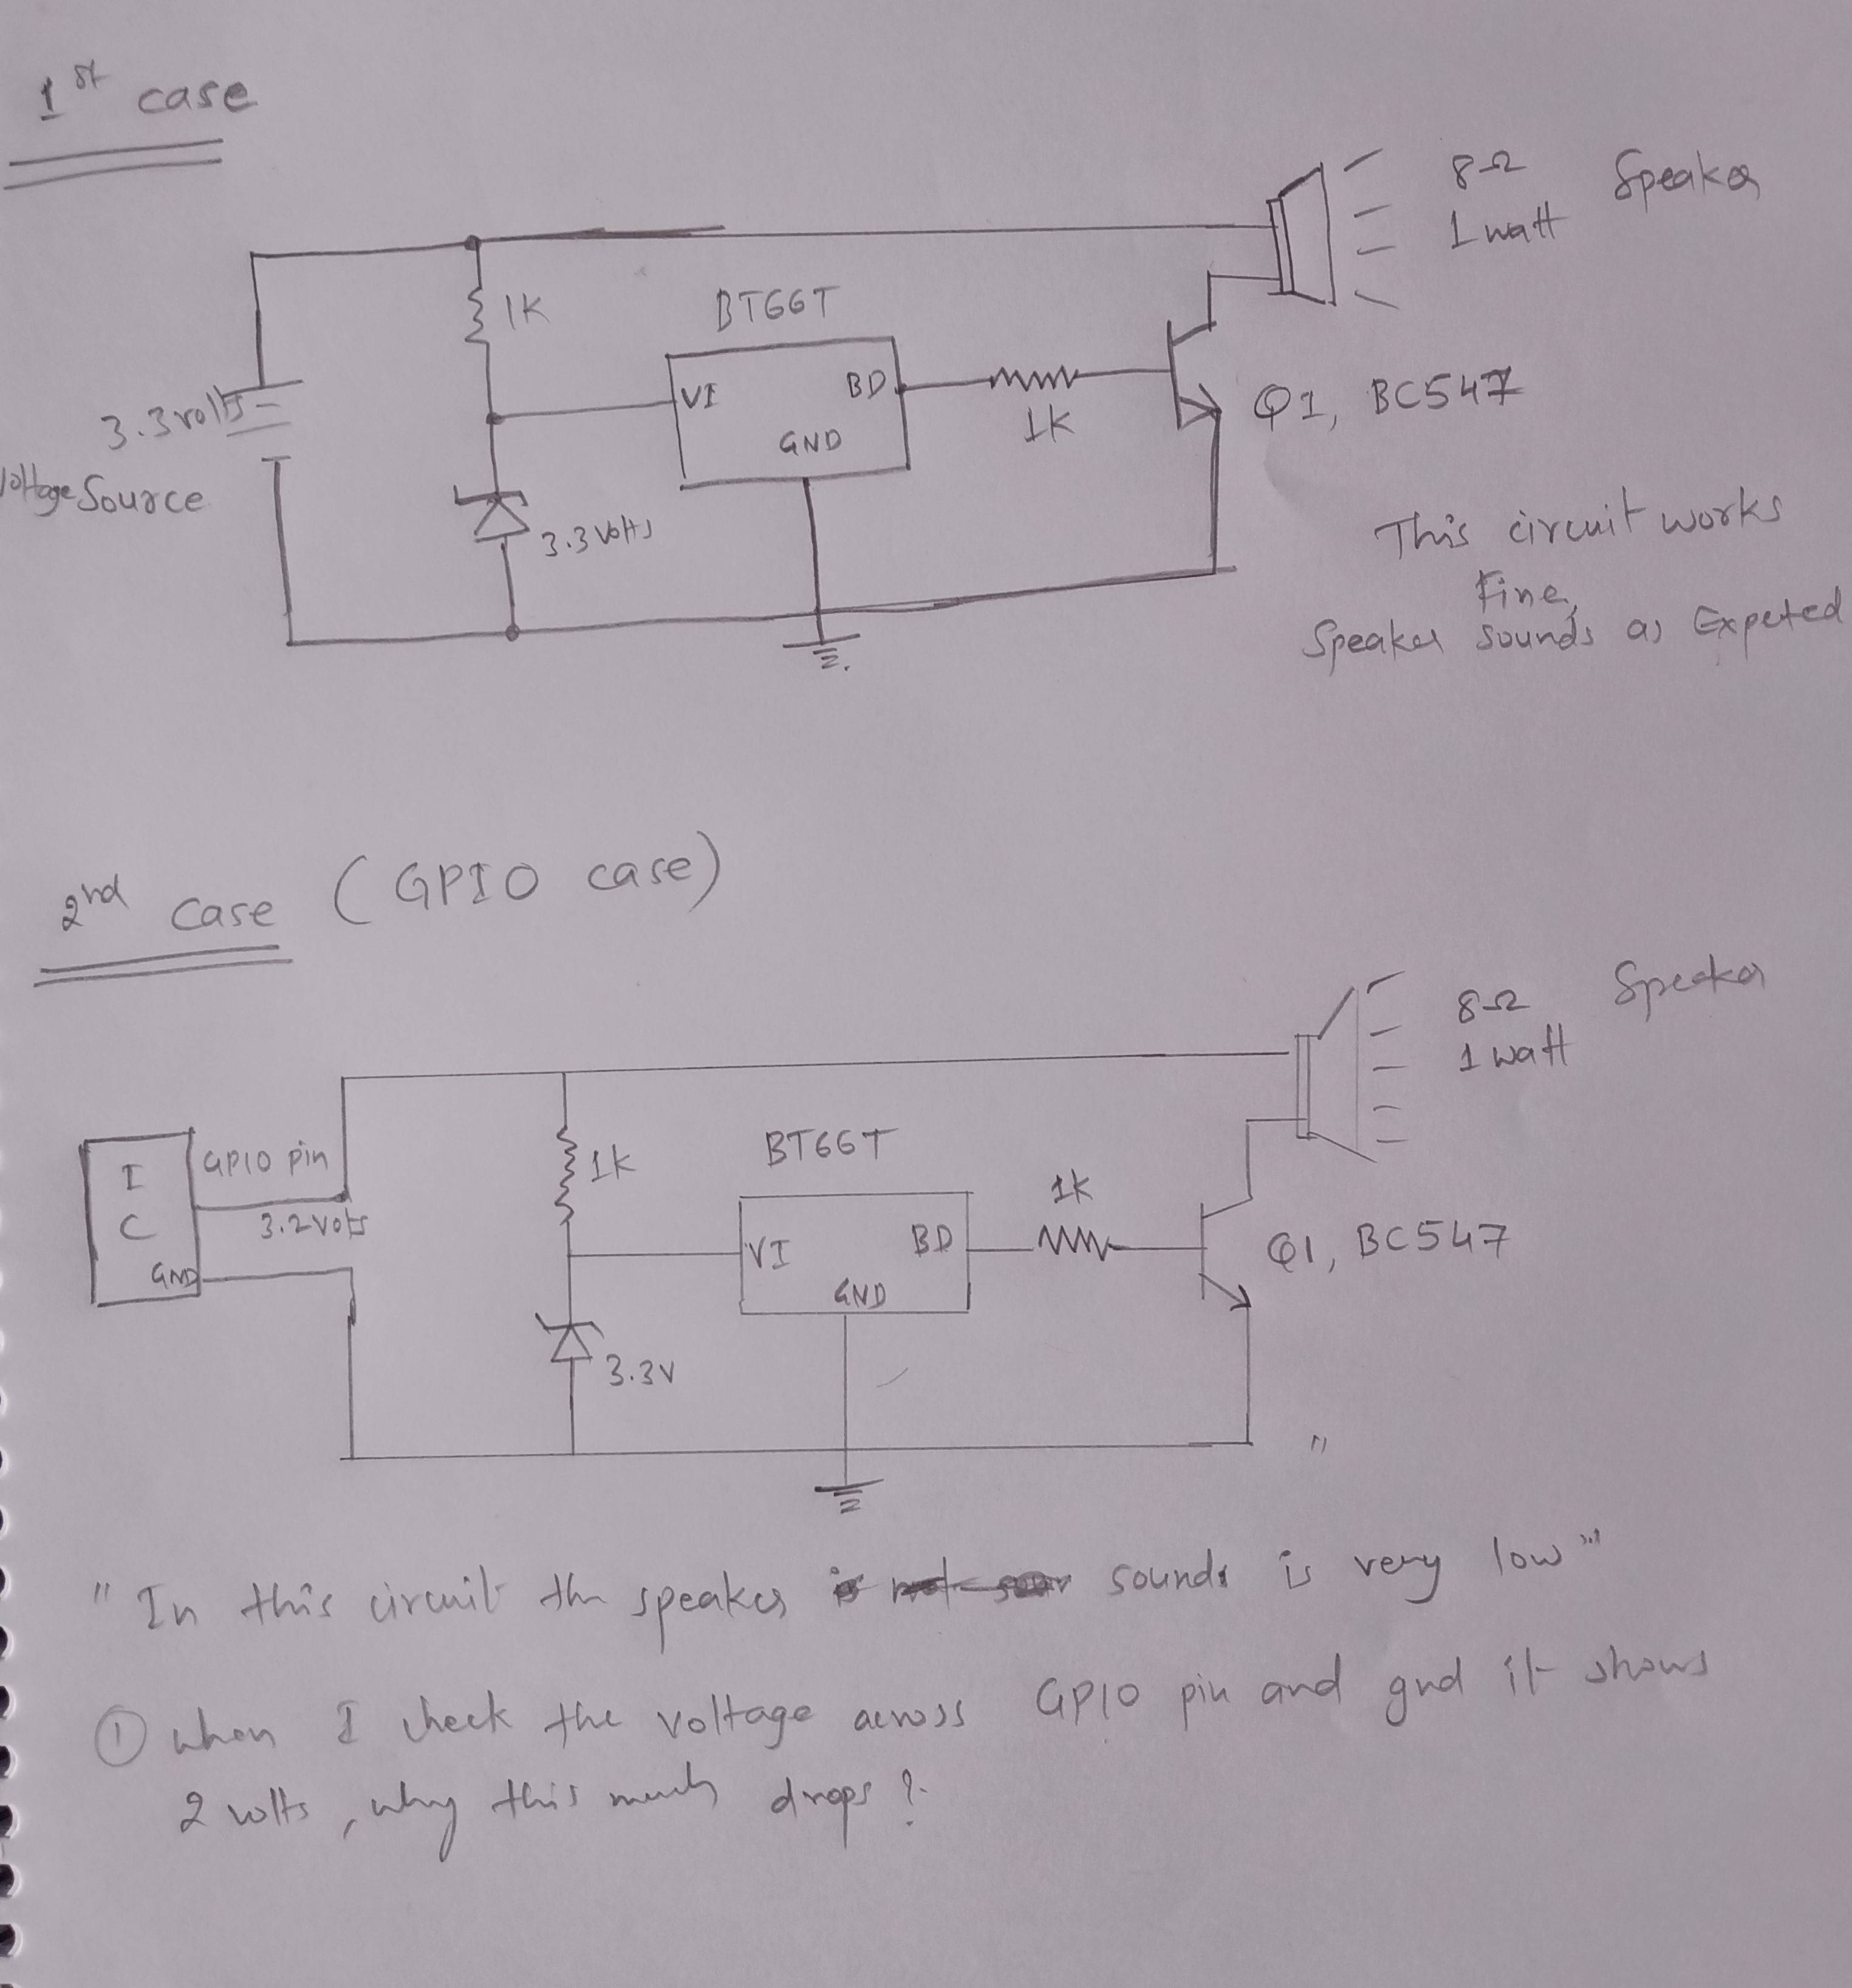 1st case
8Ω Speaker
1 watt
1K
BT66T
3.3 volts
VI
BD
GND
1K
Q1, BC547
Voltage Source
3.3 volts
This circuit works
Fine,
Speaker sounds as Expeted
2nd case (GPIO case)
8Ω Speaker
1 watt
I
C
GND
GPIO pin
3.2 volts
1K
BT66T
1K
VI
BD
GND
Q1, BC547
3.3V
"
"In this circuit the speaker is sounds is very low"
① when I check the voltage across GPIO pin and gnd it shows
2 volts, why this much drops?